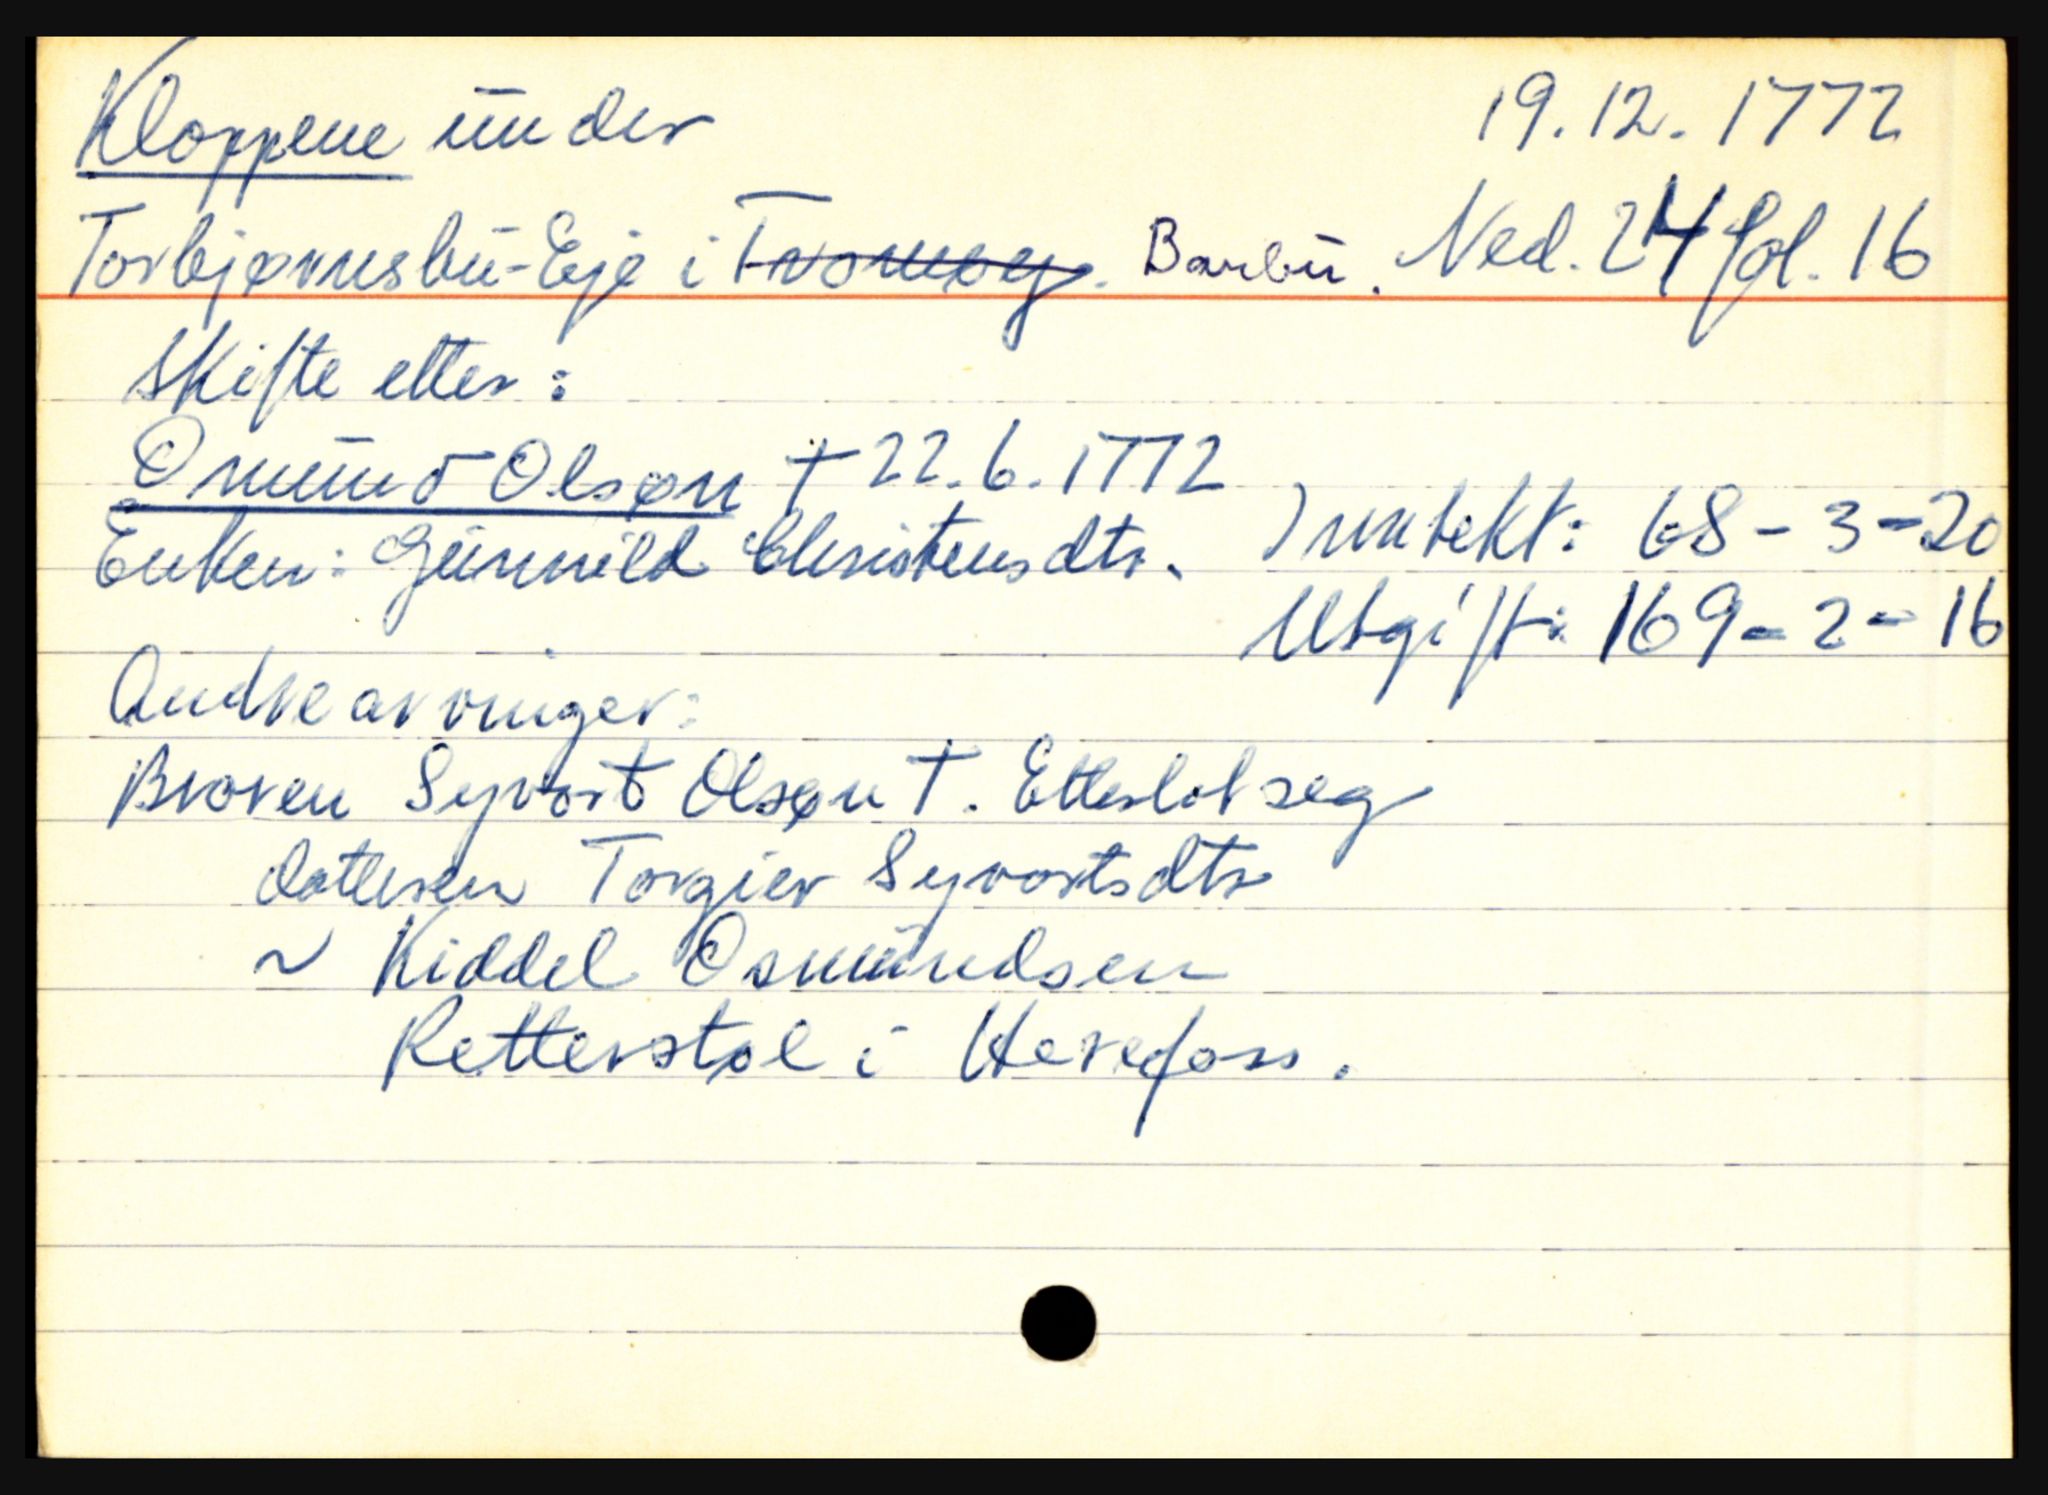 Kloppene under 19.12.1772
Torbjørnsbu-Eje i Tromøy. Barbu. Ned. 24 fol. 16
Skifte etter:
Omund Olsøn † 22.6.1772
Enken: Gunnild Christensdtr. Inntekt: 68-3-20
Utgift: 169-2-16
Andre arvinger:
Broren Syvort Olsøn †. Etterlot seg
datteren Torgier Syvortsdtr
~ Kiddel Osmundsen
Retterstøl i Herefoss.